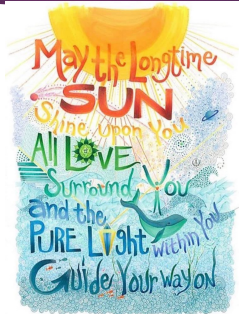 May the Longtime
SUN
Shine Upon You
All LOVE
Surround You
and the
PURE LIGHT within You
Guide Your way on